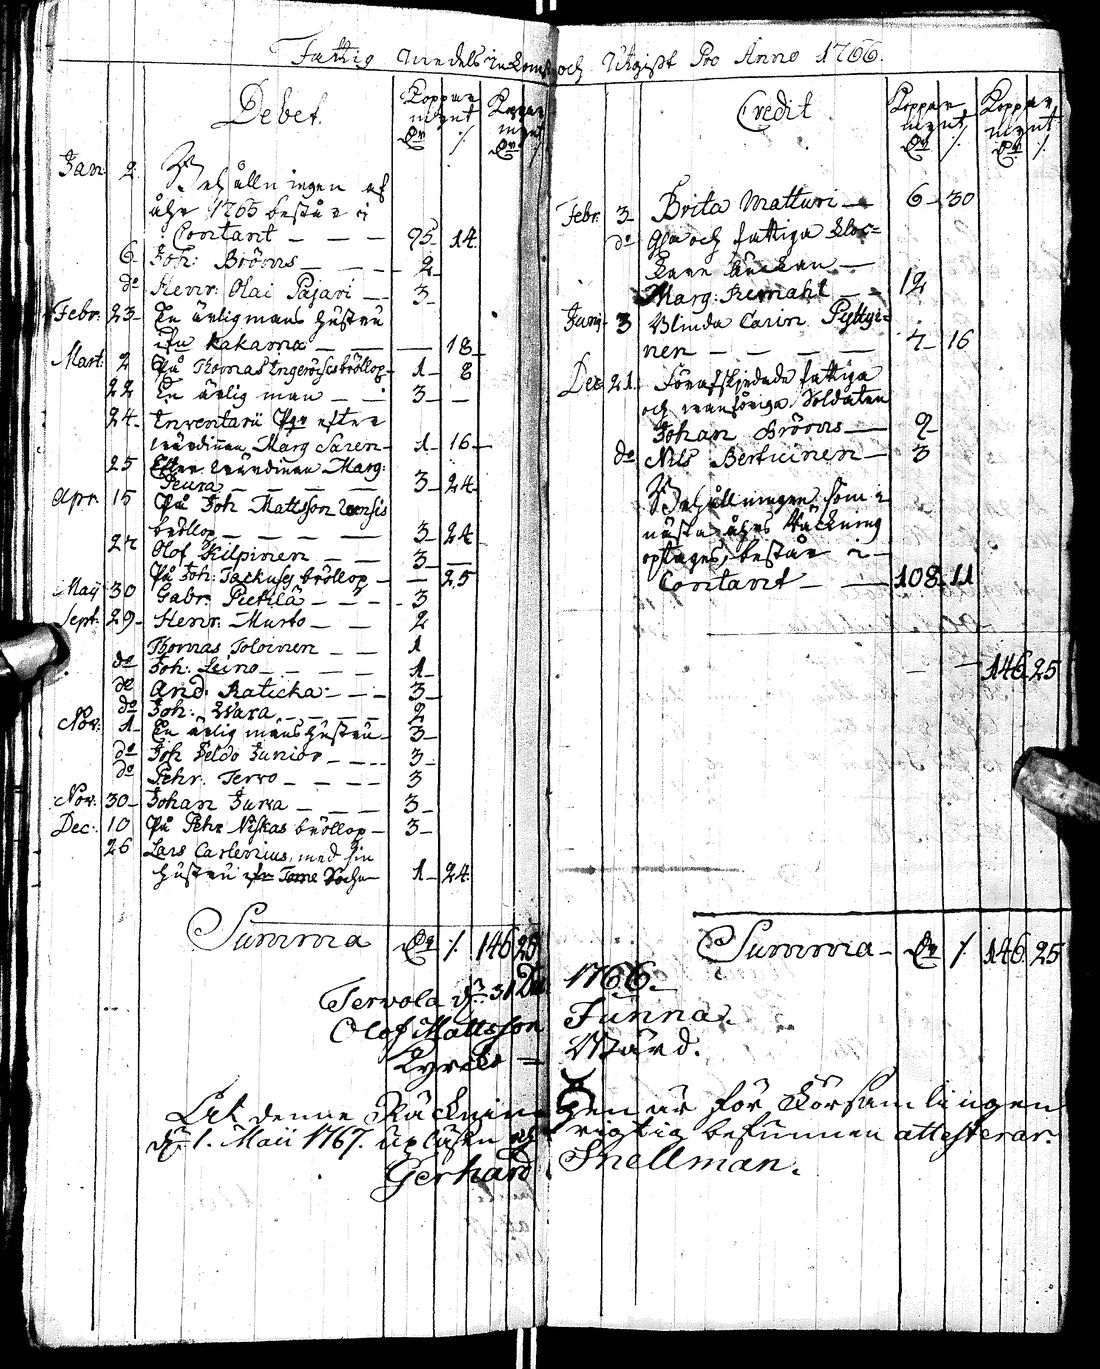 Fattig medels inkomst och Utgift Pro Anno 1766.
Debet. Koppar mynt Dr % Koppar mynt Dr %
Jan: 2. Behållningen af
åhr 1765 består i
Contant — — — 95 14
6. Joh: Bröms — — — 2
do Henr: Olai Pajari — — 3
Febr: 23 En ärlig mans hustru
ifrn Kakama — — — 18
Mart: 2 På Thomas Ingeröises bröllop 1 8
22 En ärlig man — — 3 —
24 Inventarii Pgr efter
wärdinnan Marg Saren 1 16
25 Efter wärdinnan Marg:
Peura — — — 3 24
Apr: 15 På Joh Mattsson
bröllop — — — 3 24
27 Olof Kilpinen — — 3 —
På Joh: Jackus bröllop — — 25
Maij 30 Gabr: Pietilä — — 3
Sept: 29 Henr: Murto — — 2
Thomas Toloinen — — 1
do Joh: Leino — — — 1
do And: Raticka — — 3
do Joh: Wara — — — 2
Nov: 1 En ärlig mans hustru 3
do Joh Peldo Junior — — 3
do Pehr: Tervo — — — 3
Nov: 30 Johan Jurva — — 3
Dec: 10 På Pehr Niskas bröllop — 3
26 Lars Carlenius, med sin
hustru ifrn Torne Sochn 1 24
Summa Dr % 146 25
Credit Koppar mynt Dr % Koppar mynt Dr %
Febr: 3 Brita Matturi — 6 30
do Gla och fattiga kloc=
kare änckan —
Marg: Remahl — — 12
Junij 3 Blinda Carin Pyttyi=
nen — — — — 4 16
Dec 21. Förafskjedade fattiga
och wanföriga Soldaten
Johan Bröms — 9
do Nils Bertuinen — 3
Behållningen, som i
nästa åhrs Räckning
optages, består i —
Contant — — 108 11
— — 146 25
Summa — Dr % 146 25
Tervola dn 31 Dec 1766.
Olof Mattsson Junna.
Kyrcko — Wärd.
At denne Räckningen är för Församlingen
dn 1. Maii 1767. upläsen och rigtig befunnen attesterar.
Gerhard Snellman.